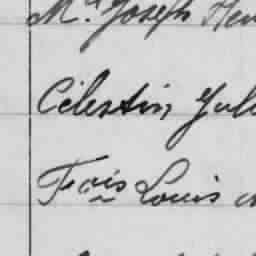 Mr. Joseph Hen
Célestin Jul
Frois Louis